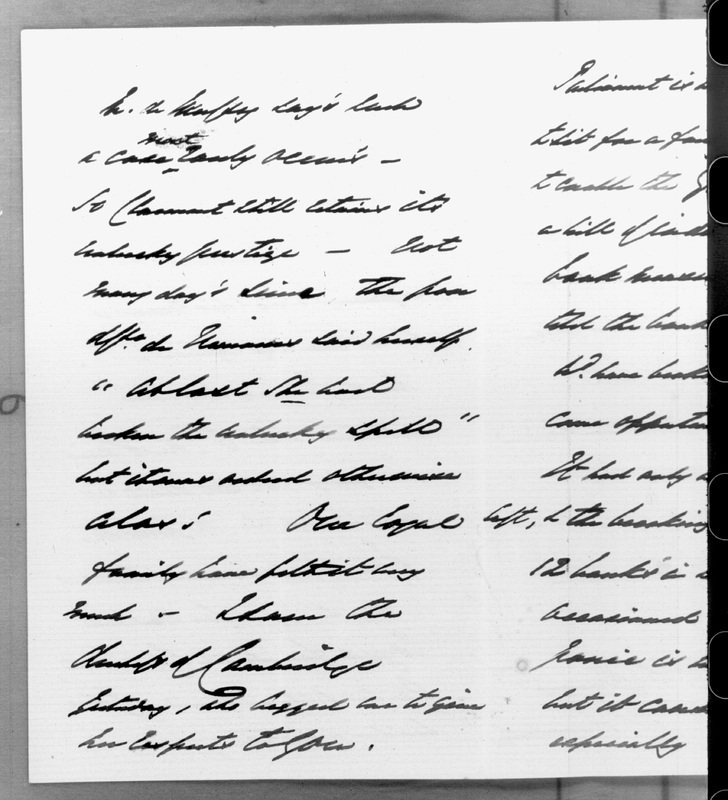 M. de Mussy say's such
most
a case rarely occurs –
So Claremont still retains its
unlucky prestige – Not
many day's since the poor
Dss. de Nemours said herself
" at last She had
broken the unlucky spell "
but it was ordered otherwise
alas! Our Royal
family have felt it very
much – I saw the
Duchess of Cambridge
Yesterday, who begged me to give
her respects to You.
Parliament is
to sit for a few
to enable the
a bill of
bank
told the bank
have
come
It had only
left, to the breaking
12 bank's in
occasioned
is
but it
especially